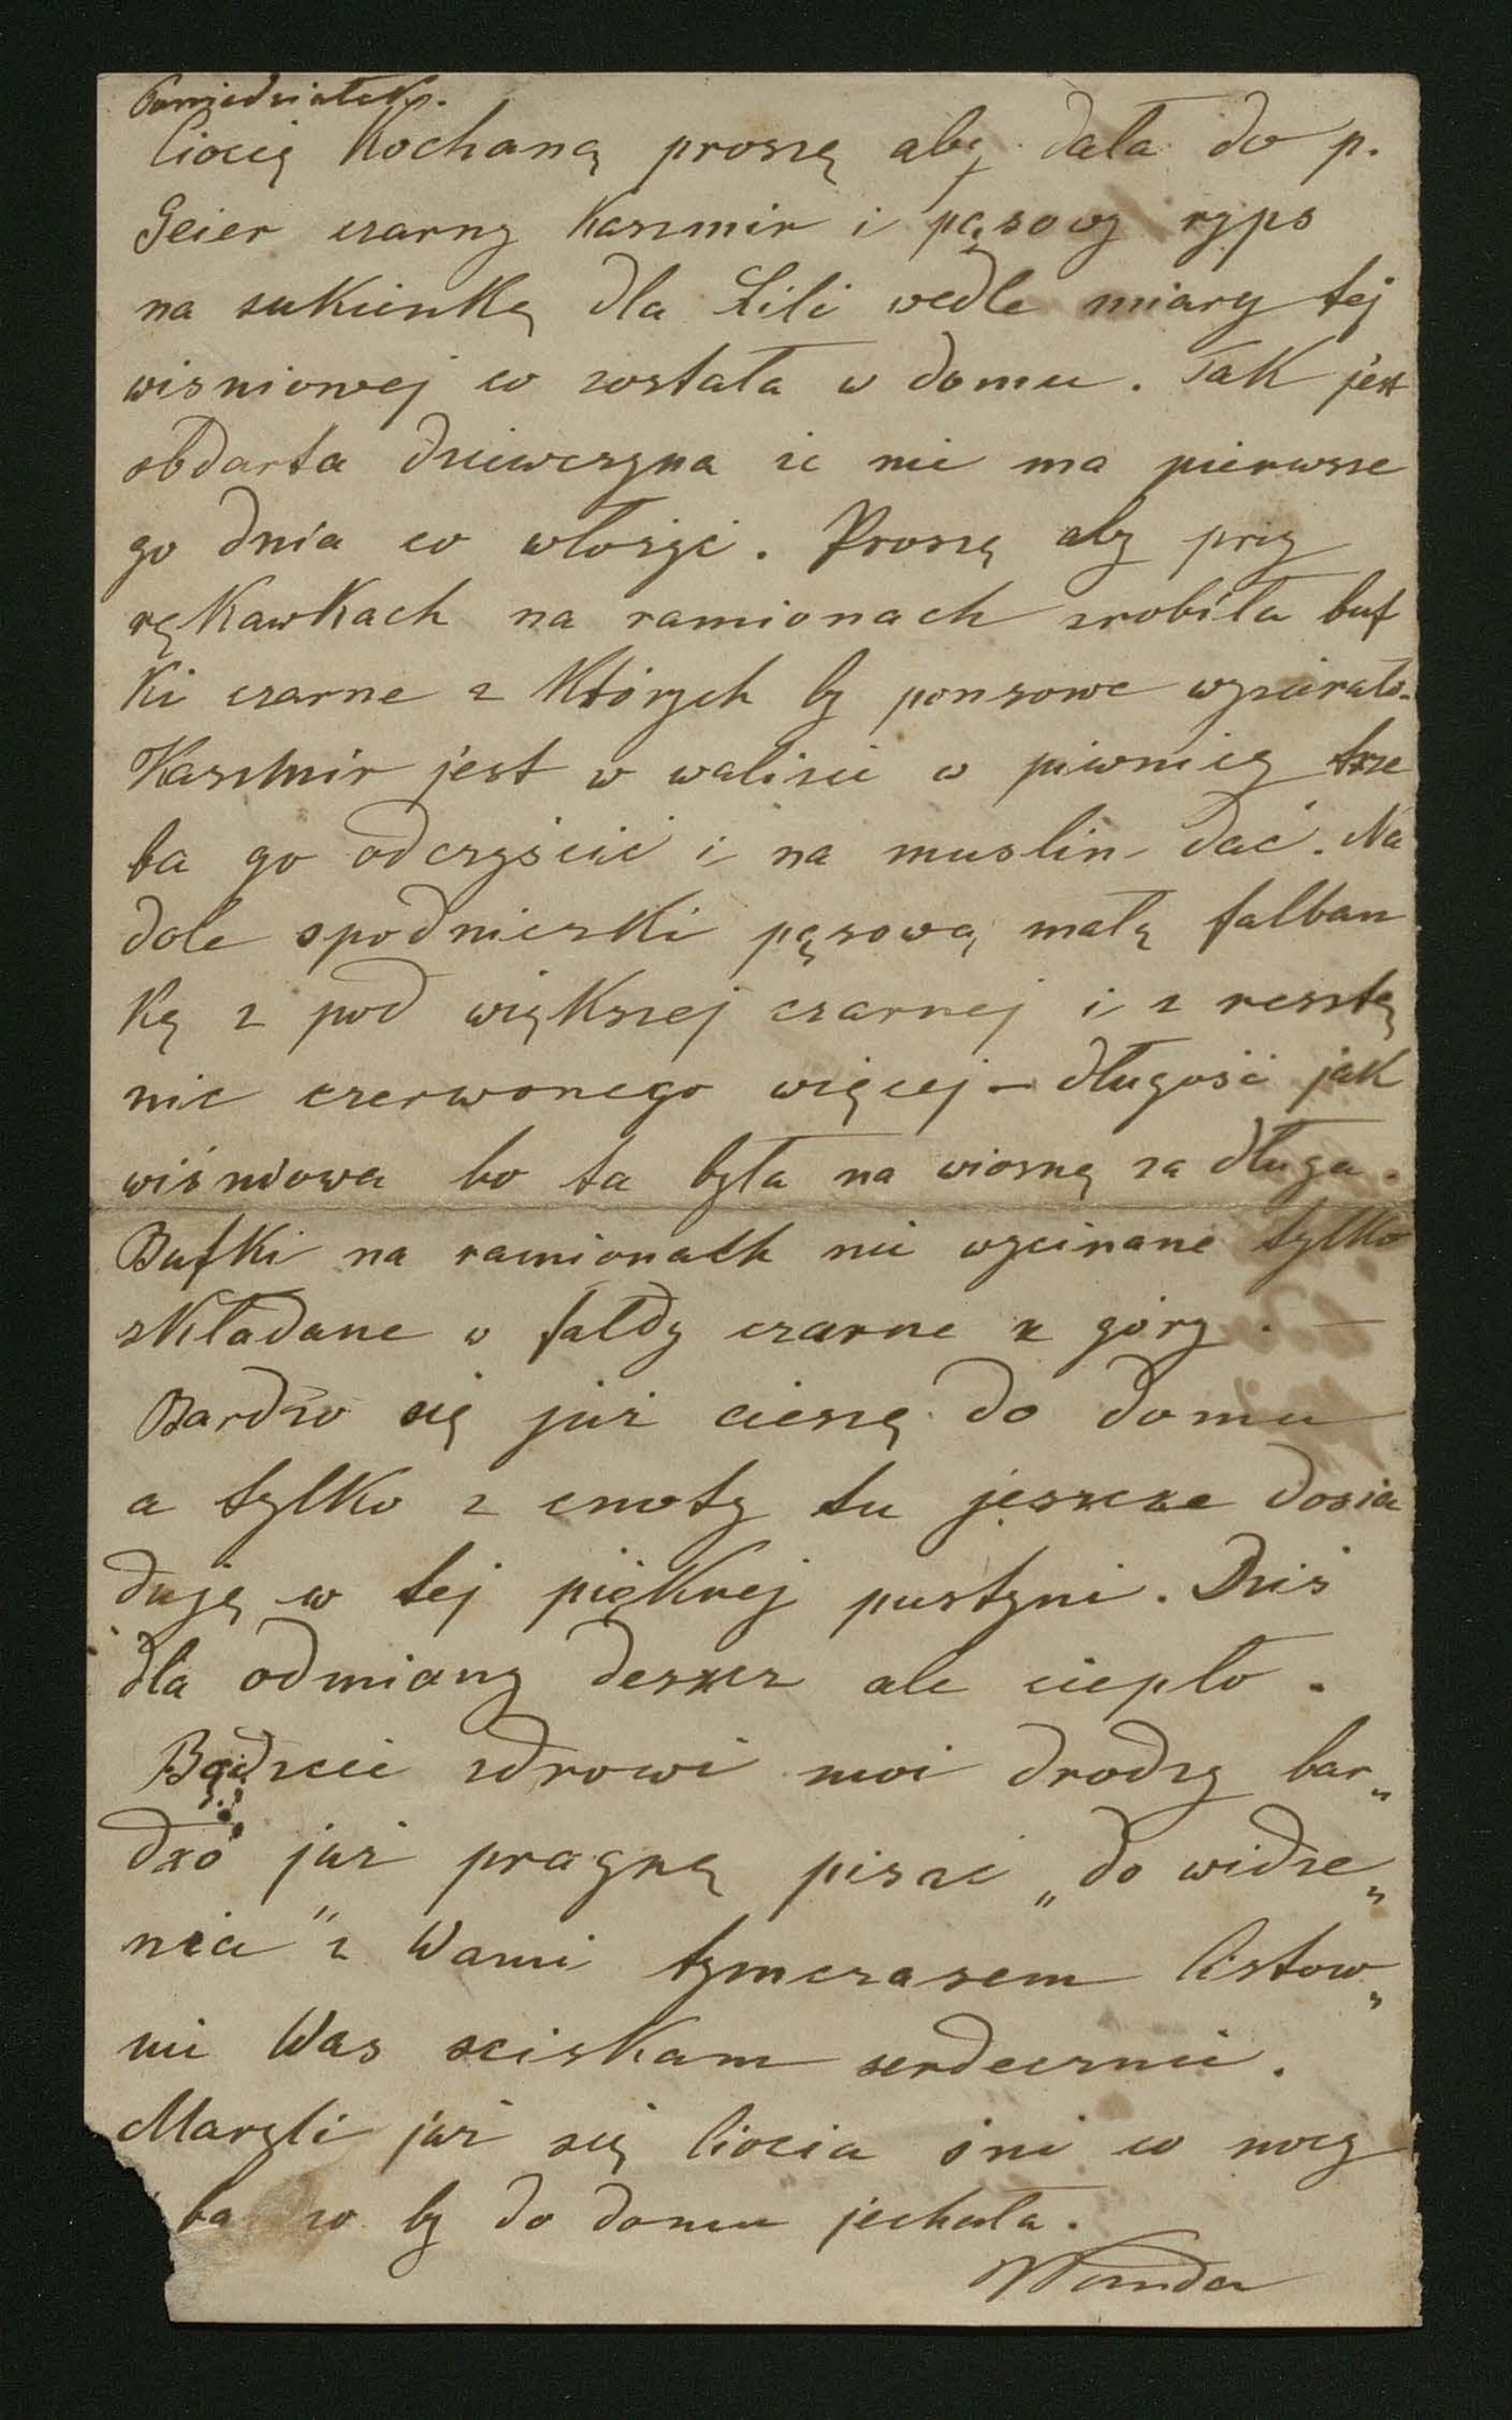 Poniedziałek.
Ciocię Kochaną proszę aby dała do p.
Geier czarny Kaszmir i pąsowy ryps
na sukienkę dla Lili wedle miary tej
wisniowej co została w domu. Tak jest
obdarta dziewczyna że nie ma pierwsze
go dnia co włożyć. Proszę aby przy
rękawkach na ramionach zrobiła buf
ki czarne z których by ponsowe wyzierało.
Kaszmir jest w walizie w piwnicy trze
ba go odczyścić i na muslin dać. Na
dole spodniczki pąsową małą falban
kę z pod większej czarnej i z resztą
nic czerwonego więcej – długość jak
wiśniowa bo ta była na wiosnę za długa.
Bufki na ramionach nie wycinane tylko
składane w fałdy czarne z góry. —
Bardzo się już cieszę do domu
a tylko z cnoty tu jeszcze dosia
duję w tej pięknej pustyni. Dziś
dla odmiany deszcz ale ciepło.
Bądźcie zdrowi moi drodzy bar„
dzo już pragnę pisać „do widze„
nia" z Wami tymczasem listow„
nie Was sciskam serdecznie.
Maryli już się Ciocia śni w nocy
ba zo by do domu jechała.
Wanda